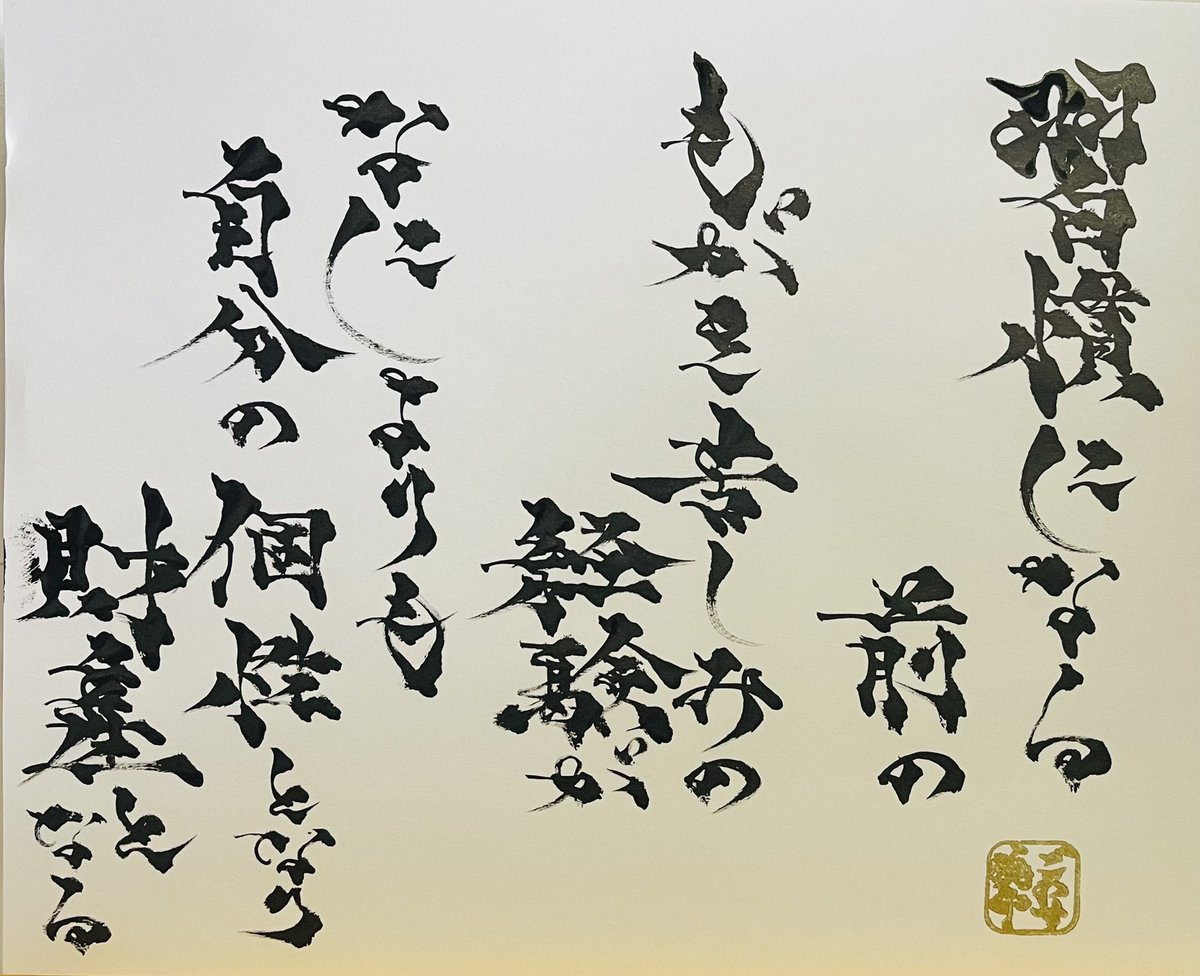 習慣になる
前の
もがき苦しみの
経験が
なによりも
自分の
個性となり
財産となる